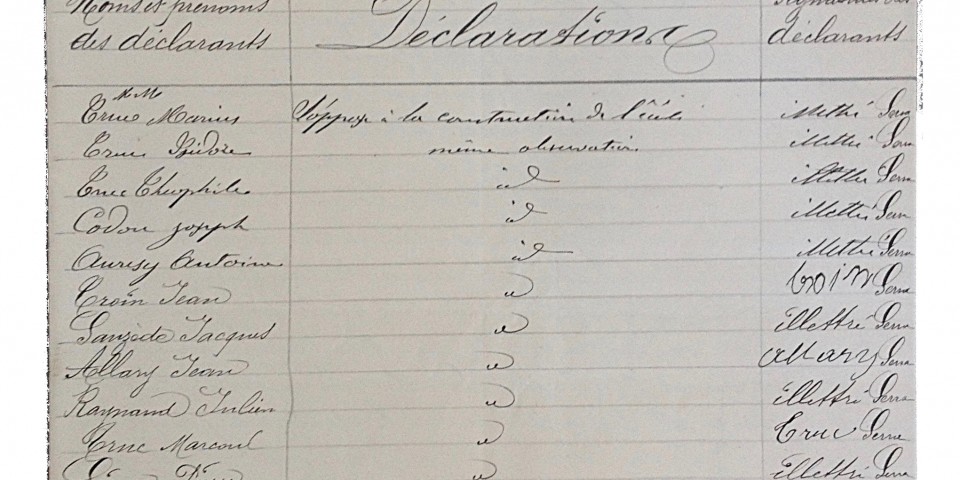 Noms et prénoms
des déclarants Déclarations déclarants
MM
Truc Marius S'oppose à la construction de l'école illettré Serre
Truc Isidore même observation illettré Serre
Truc Théophile id illettré Serre
Codou joseph id illettré Serre
Auresy Antoine id illettré Serre
Troin Jean id troin Serre
Jacques id illettré Serre
Allary Jean id allary Serre
Raynaud Julien id illettré Serre
Truc Marcoul id Truc Serre
id illettré Serre